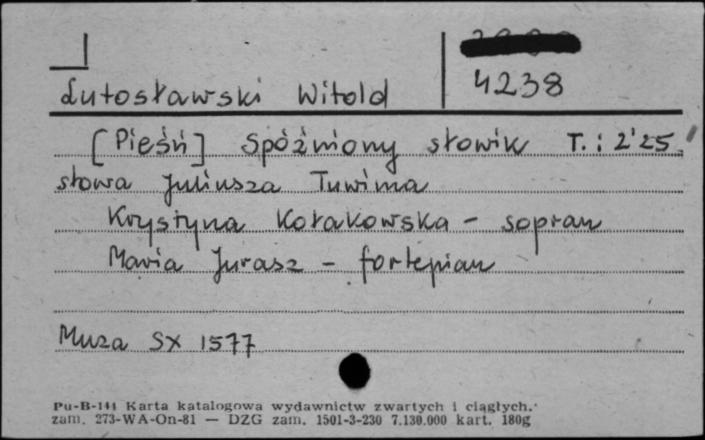 Lutosławski Witold
4238
[Pieśń] Spóźniony słowik T.: 2'25
słowa Juliusza Tuwima
Krystyna Kołakowska - sopran
Maria Jurasz - fortepian
Muza SX 1577
Pu-B-141 Karta katalogowa wydawnictw zwartych i ciągłych.
zam. 273-WA-On-81 — DZG zam. 1501-3-230 7.130.000 kart. 180g